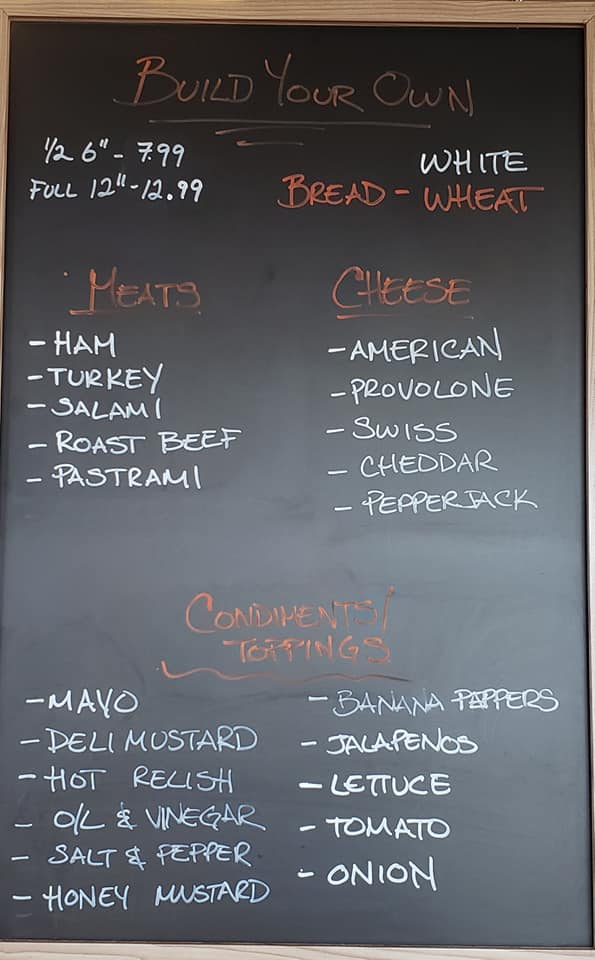 BUILD YOUR OWN
1/2 6" - 7.99
FULL 12" - 12.99
WHITE
BREAD - WHEAT
MEATS
- HAM
- TURKEY
- SALAMI
- ROAST BEEF
- PASTRAMI
CHEESE
- AMERICAN
- PROVOLONE
- SWISS
- CHEDDAR
- PEPPERJACK
CONDIMENTS/
TOPPINGS
- MAYO
- DELI MUSTARD
- HOT RELISH
- OIL & VINEGAR
- SALT & PEPPER
- HONEY MUSTARD
- BANANA PEPPERS
- JALAPENOS
- LETTUCE
- TOMATO
- ONION